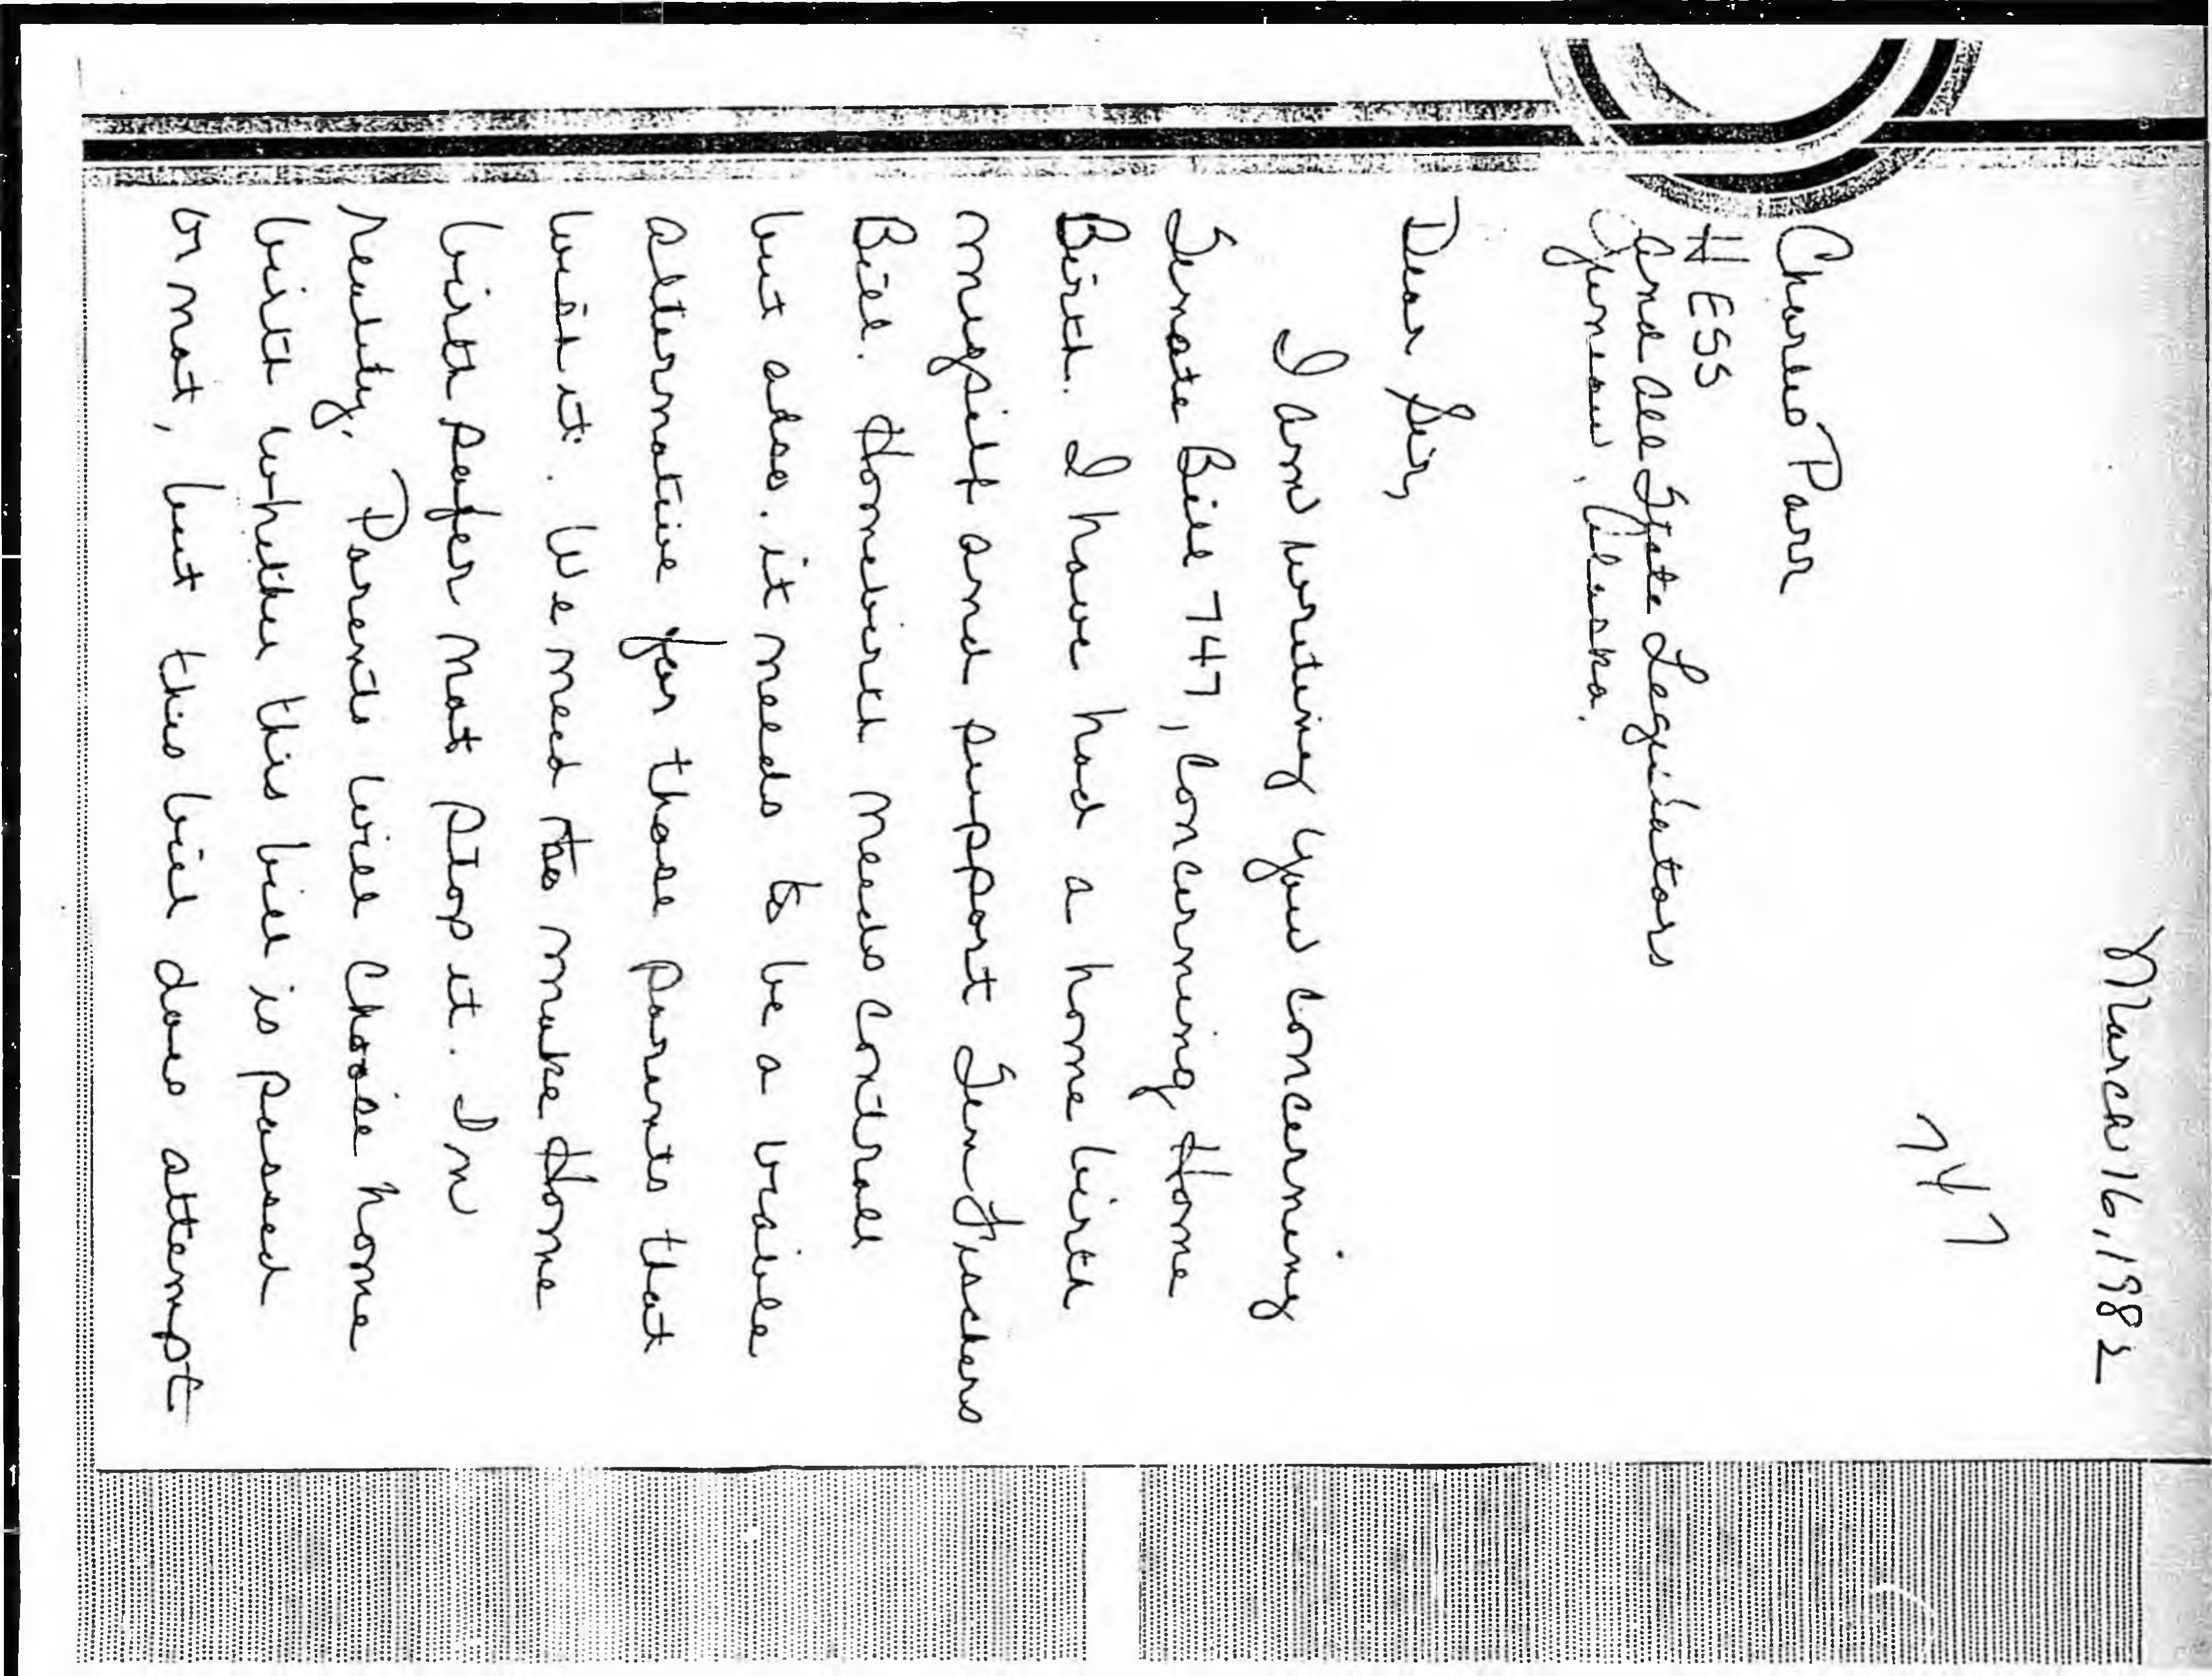 March 16, 1982
747
Charles Parr
HESS
and all State Legislators
Juneau, Alaska.
Dear Sir,
I am writing you concerning
Senate Bill 747, Concerning Home
Birth. I have had a home birth
myself and support Sen Fischers
Bill. Homebirth needs controll
but also it needs to be a viable
alternative for those parents that
wish it. We need to make Home
birth safer not stop it. In
reality, Parents will choose home
birth whether this bill is passed
or not, but this bill does attempt